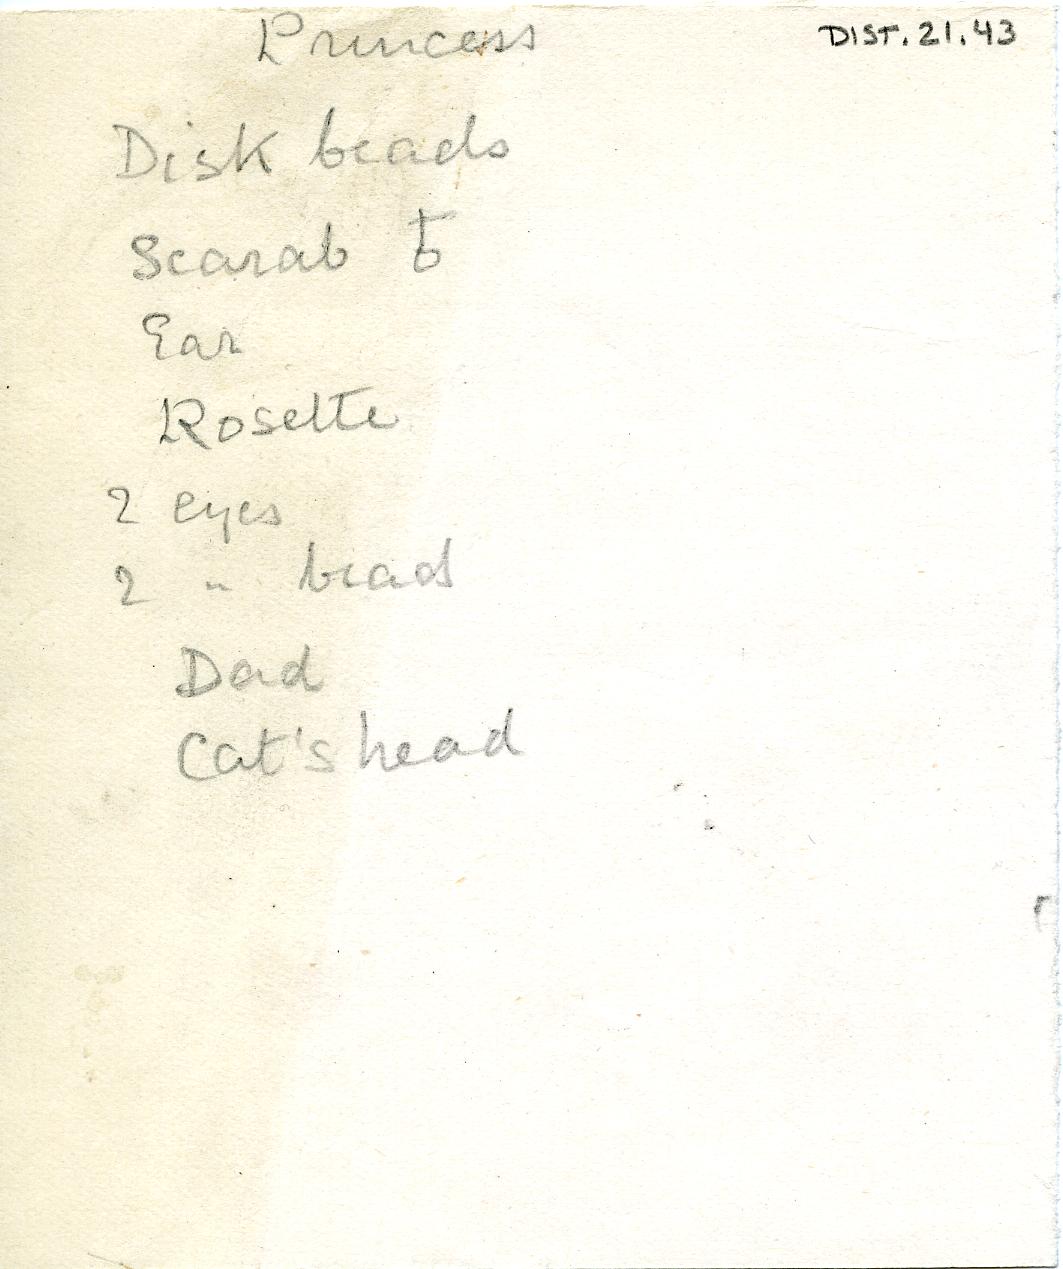 Princess
DIST. 21.43
Disk beads
Scarab
Ear
Rosette
2 eyes
2 " bead
Dad
Cat's head